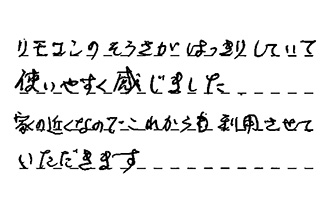 リモコンのそうさがはっきりしていて
使いやすく感じました.
家の近くなのでこれからも利用させて
いただきます